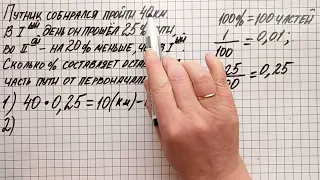 Путник собирался пройти 40 км.
В I день он прошел 25% пути,
во II - на 20% меньше, чем в I
Сколько % составляет
часть пути от первонача
1) 40 · 0,25 = 10 (км) -
2)
100% = 100 частей
1/100 = 0,01;
25/100 = 0,25